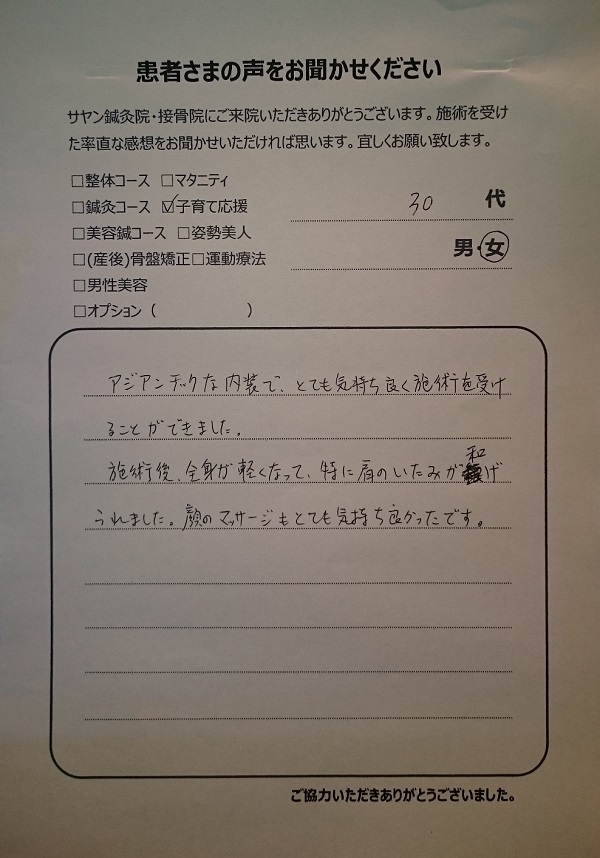 患者さまの声をお聞かせください
サヤン鍼灸院・接骨院にご来院いただきありがとうございます。施術を受け
た率直な感想をお聞かせいただければ思います。宜しくお願い致します。
□整体コース □マタニティ
□鍼灸コース ☑子育て応援
30 代
□美容鍼コース □姿勢美人
男・女
□(産後)骨盤矯正□運動療法
□男性美容
□オプション（ ）
アジアンチックな内装で、とても気持ち良く施術を受け
ることができました。
施術後、全身が軽くなって、特に肩のいたみが和げ
られました。顔のマッサージもとても気持ち良かったです。
ご協力いただきありがとうございました。